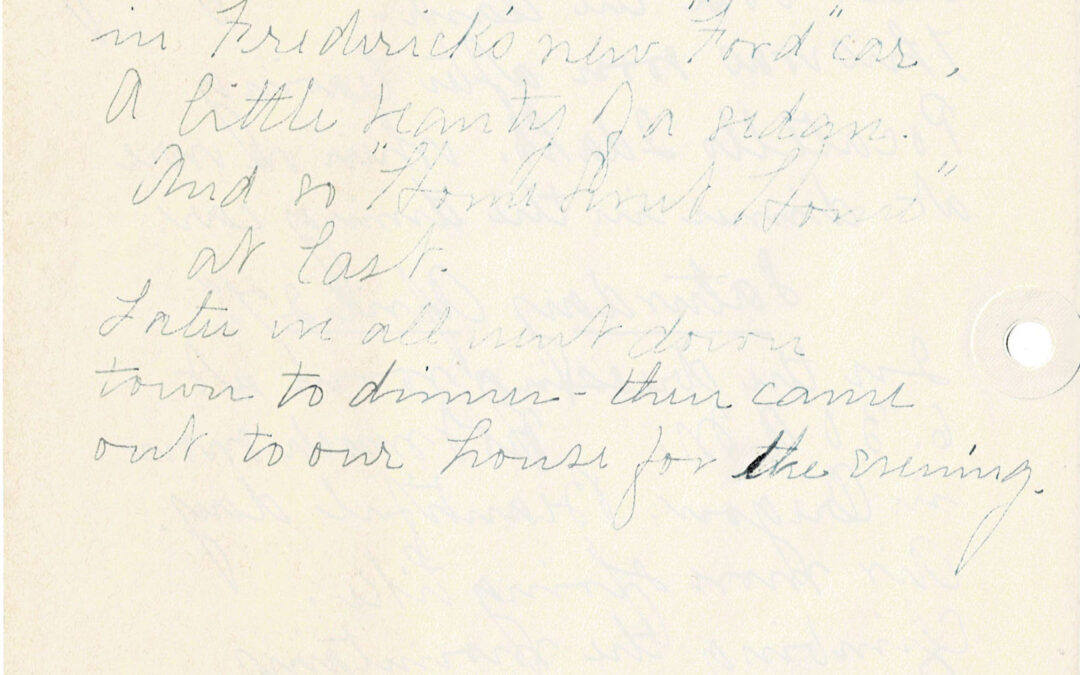 in Frederick's new "Ford" car,
A little beauty of a sedan.
And so "Home Sweet Home"
at last.
Later we all went down
town to dinner - then came
out to our house for the evening.